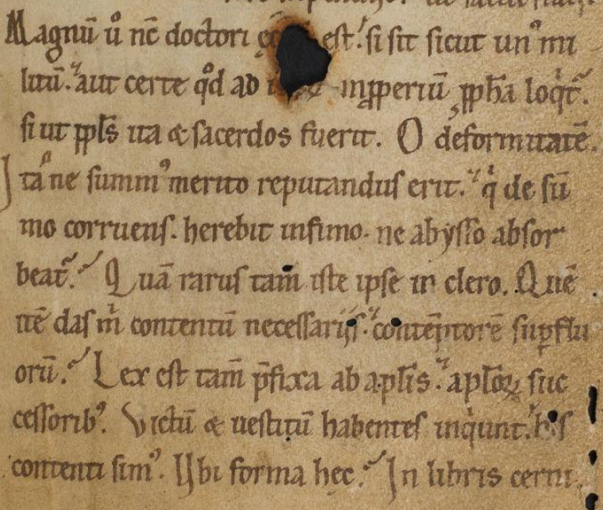 Magnū u̾ nc̄ doctori est. si sit sicut un᷒ mi
litū. aut certe qd̾ ad imꝓperiū ꝓph̄a loqͥt᷑.
si ut ppl̄s ita & sacerdos fuerit. O deformitatē.
Itaͦ ne summ᷒ merito reputandus erit. qͥ de sū
mo corruens. herebit infimo. ne abysso absor
beat᷑. Quā rarus tam̄ iste ipse in clero. Quē
tē das m̄ contentū necessariis. contēptorē suꝑflu
orū. Lex est tam̄ p̄fixa ab aplīs. aplōꝝ suc
cessorib᷒. Victū & uestitū habentes inqͥunt. his
contenti sim᷒. Ubi forma hęc. In libris cerni